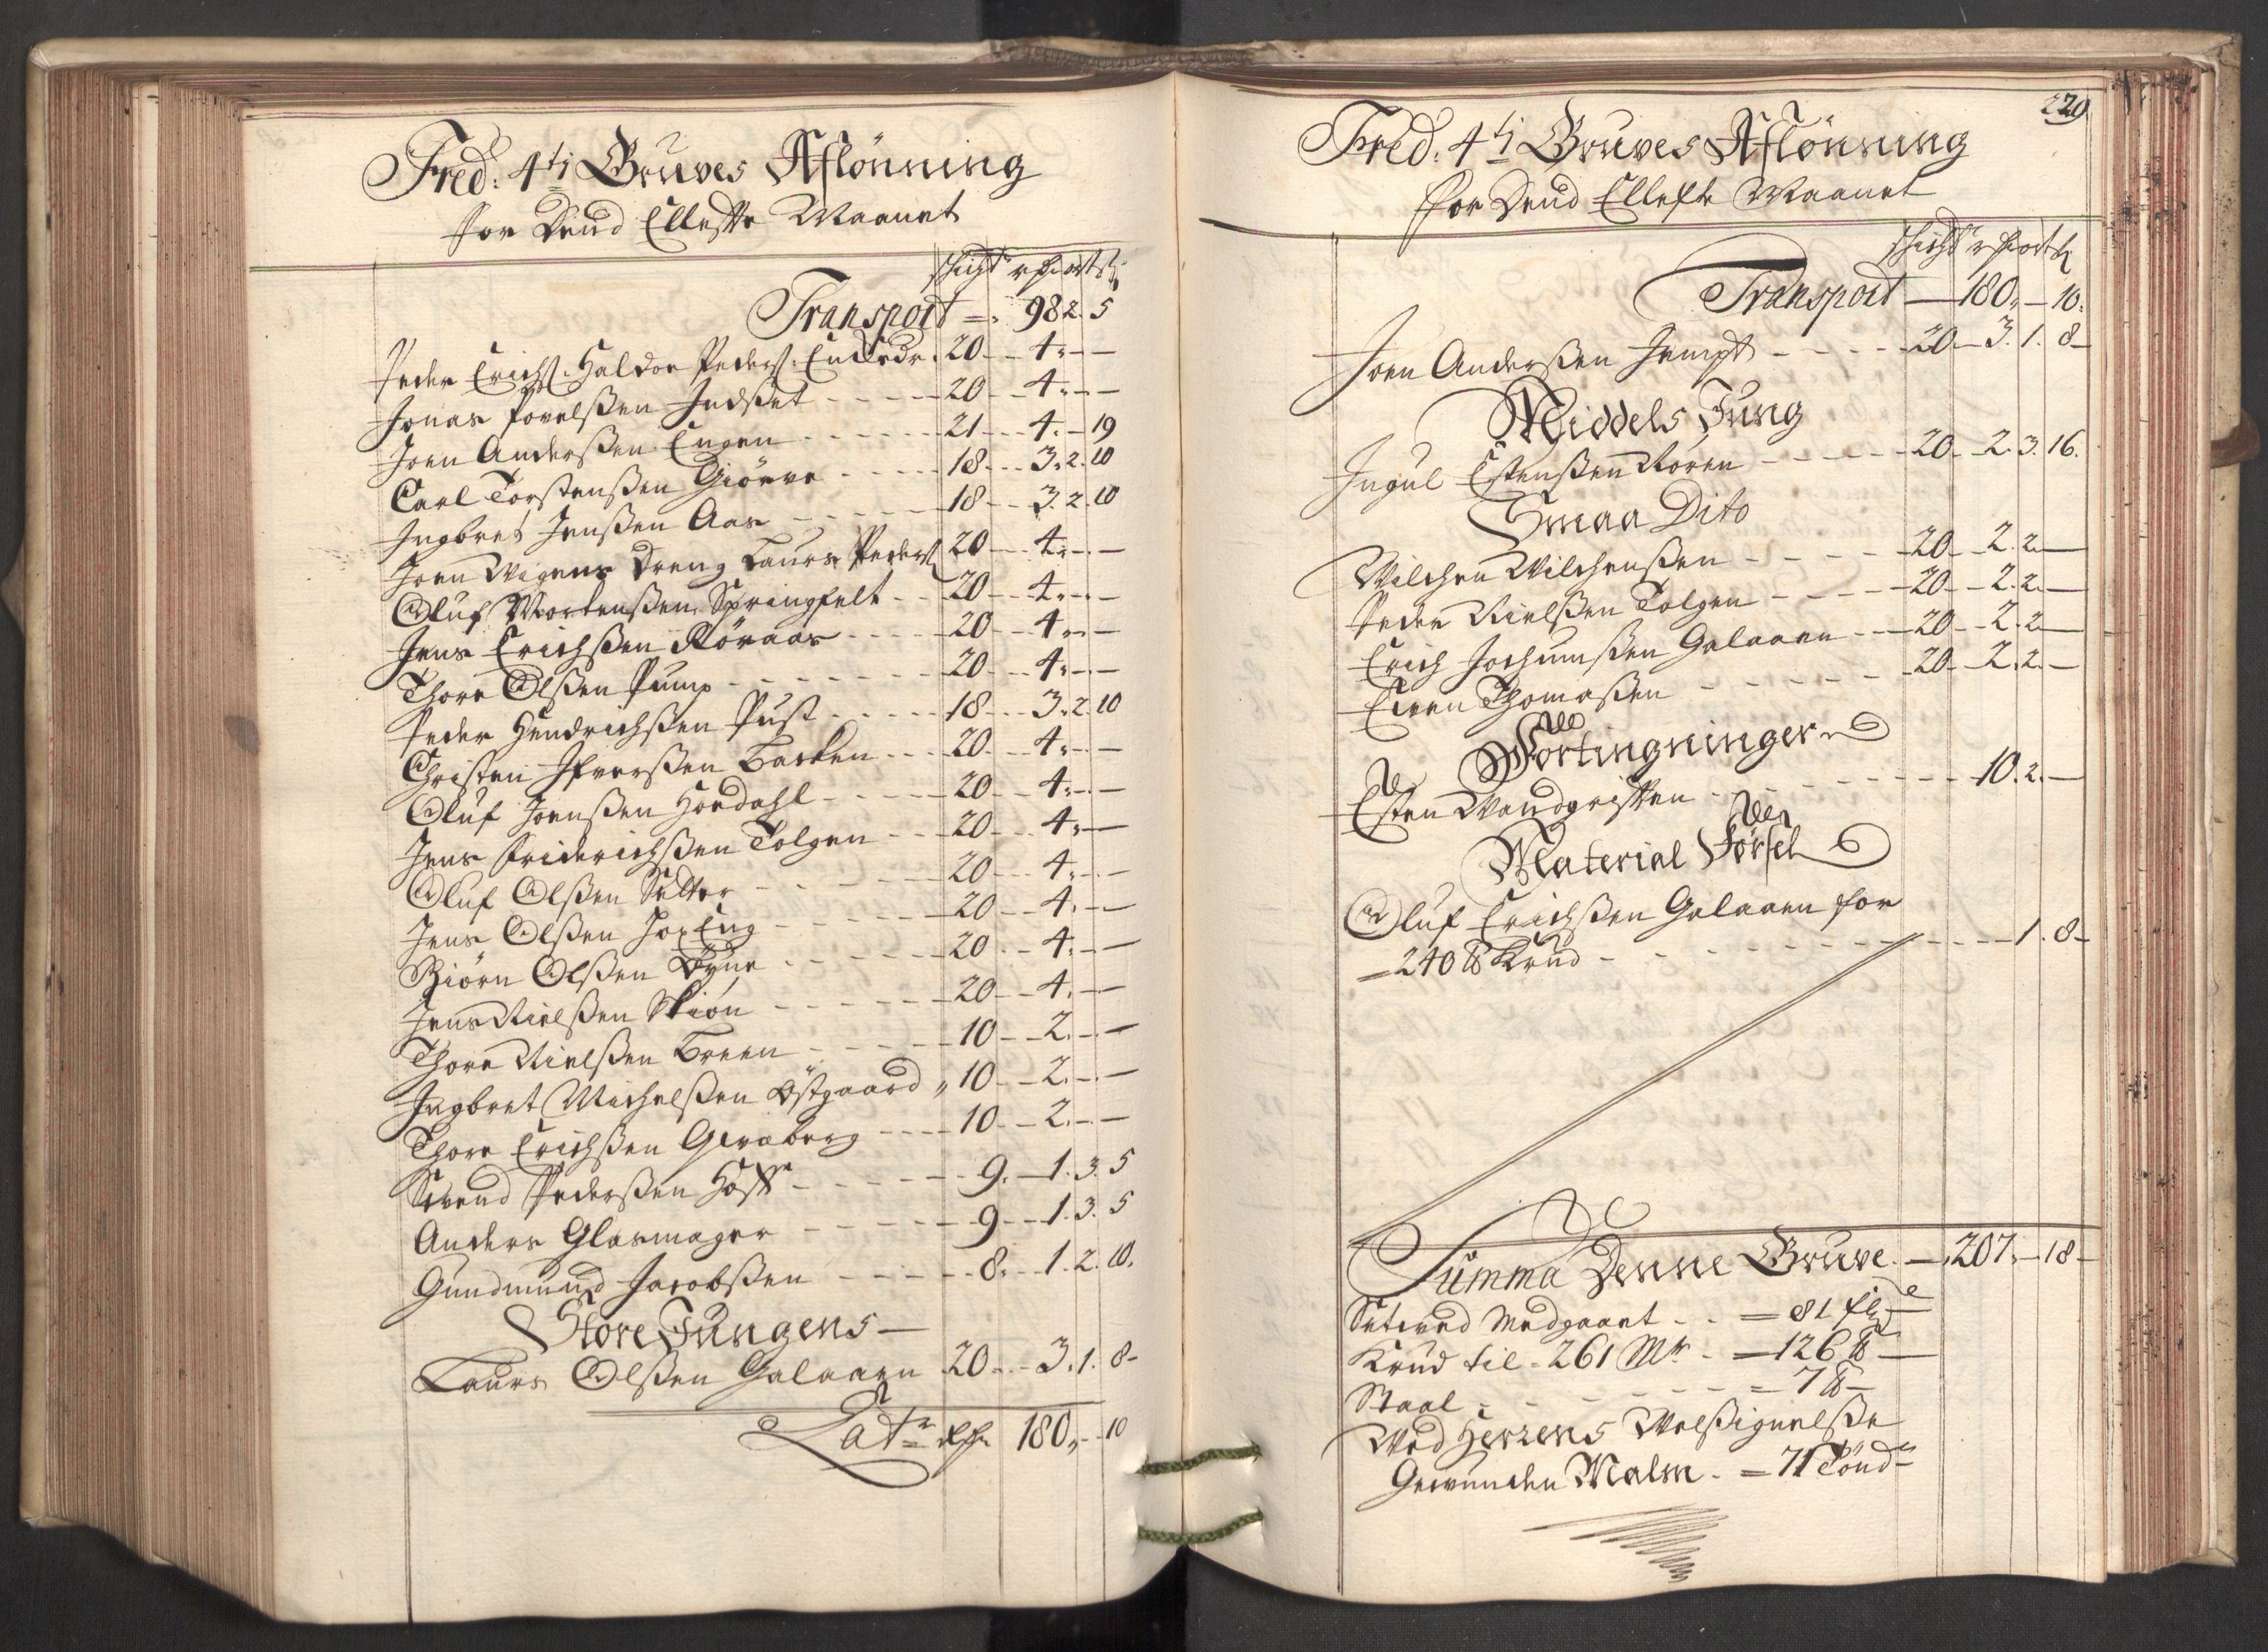 Fred: 4ti Gruves Aflönning
for Dend Ellefte Maanet
schicht rs ort s
Transport 98 2. 5
Peder Erichs: Haldor Peders: 20 4 - -
Jonas Povelssen Indset 20 4 - -
Joen Anderssen Engen 21 4 - 19
Carl Torstenssen Giörve 18 3. 2. 10
Ingbret Jenssen Aas 18 3. 2. 10
Joen Wigens Dreng Laurs Peders 20 4 - -
Oluf Mortenssen Springfelt 20 4 - -
Jens Erichssen Röraas 20 4 - -
Thore Olssen Pump 20 4 - -
Peder Hendrichssen Pust 18 3. 2. 10
Christen Ifverssen Backen 20 4 - -
Oluf Joenssen Hordahl 20 4 - -
Jens Friderichssen Tolgen 20 4 - -
Oluf Olssen 20 4 - -
Jens Olssen Eng 20 4 - -
Biörn Olssen 20 4 - -
Jens Nielssen Skiön 20 4 - -
Thore Nielssen Breen 10 2 - -
Ingbret Michelssen Östgaard 10 2 - -
Thore Erichssen Gevæberg 10 2 - -
Svend Pederssen Hoff 9. 1. 3. 5
Anders Glasmager 9 1. 3. 5
Gundmund Jacobssen 8. 1. 2. 10.
Store Jungens
Laurs Olssen Galaaen 20 3. 1. 8
Latr 180 - 10
220
Fred: 4ti Gruves Aflönning
for Dend Ellefte Maanet
schicht rs ort s
Transport 180 - 10.
Joen Anderssen Jempt 20 3. 1. 8
Middels Jung
Ingul Estenssen Moren 20 2. 3. 16.
Smaa Dito
Wilchen Wilchenssen 20 2. 2. -
Peder Nielssen Tolgen 20 2. 2. -
Erich Jochumssen Galaaen 20 2. 2 -
Even Thomassen 20 2. 2. -
Fortingninger
Esten Vandgrifften 10. 2. -
Material Förssel
Oluf Erichssen Galaaen for
240 ℔ Krud 1. 8
Summa Denne Gruve 207 - 18
Setved Medgaaet = 81
Krud til 261 Mr = 126 ℔
Staal = 7 ℔
Ved Herrens Velssignelsse
Gewunden Malm = 71 Tönd